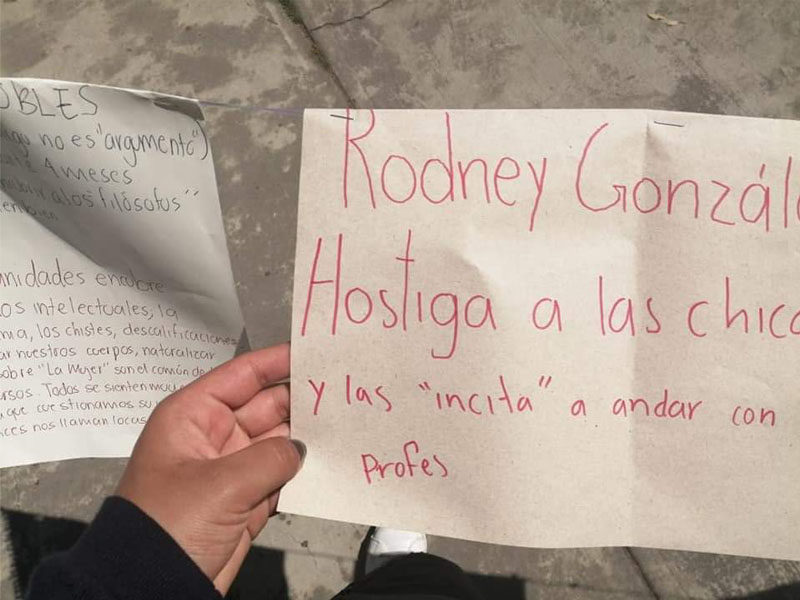 OBLES
no es "argumento")
4 meses
a los "filósofos"
nidades encubre
os intelectuales, la
los chistes, descalificaciones
ar nuestros cuerpos, naturalizar
sobre "La Mujer" son el común de
rsos. Todos se sienten muy
que cuestionamos su
ces nos llaman locas
Rodney Gonzál
Hostiga a las chica
y las "incita" a andar con
profes